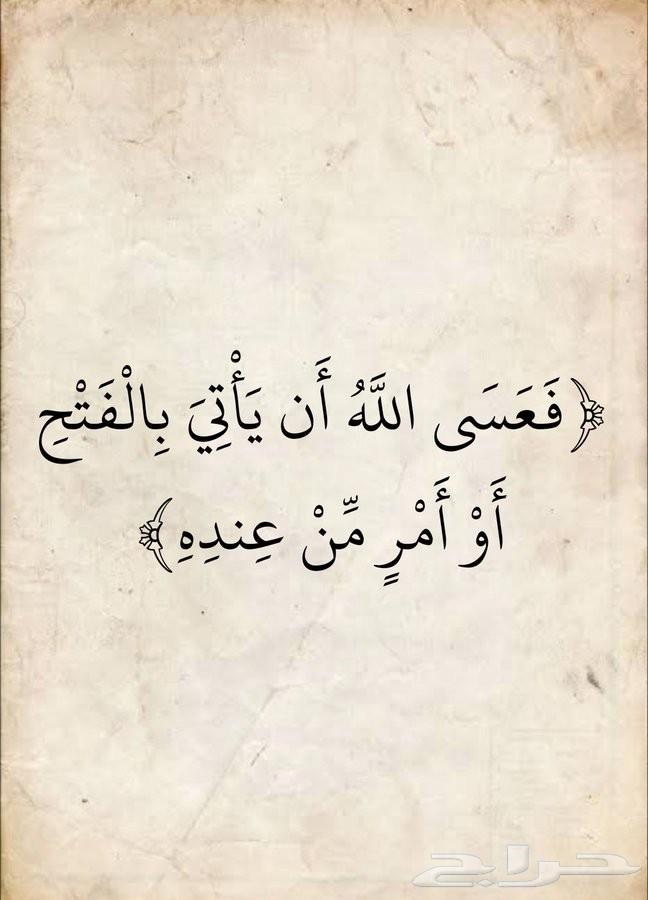 ﴿فَعَسَى اللَّهُ أَن يَأْتِيَ بِالْفَتْحِ
أَوْ أَمْرٍ مِّنْ عِندِهِ﴾
حراج